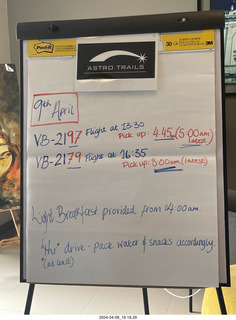 Post-it
3M
ASTRO TRAILS
9th April
VB-2197 Flight at 13:30
Pick up: 4.45 (5:00am latest)
VB-2179 Flight at 16:35
Pick up: 8:00am (latest)
Light Breakfast provided from 4:00am.
"4hr" drive - pack water & snacks accordingly
*(at least)
2024-04-08_18.18.29